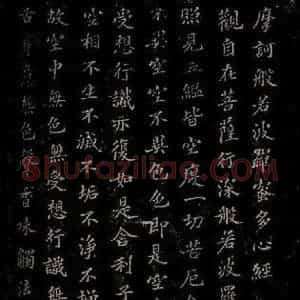 摩訶般若波羅蜜多心經
觀自在菩薩行深般若波羅
照見五蘊皆空度一切苦厄
不異空空不異色色即是空
受想行識亦復如是舍利子
空相不生不滅不垢不淨不
故空中無色無受想行識無
舌身意無色聲香味觸法
Shufaziliao.com